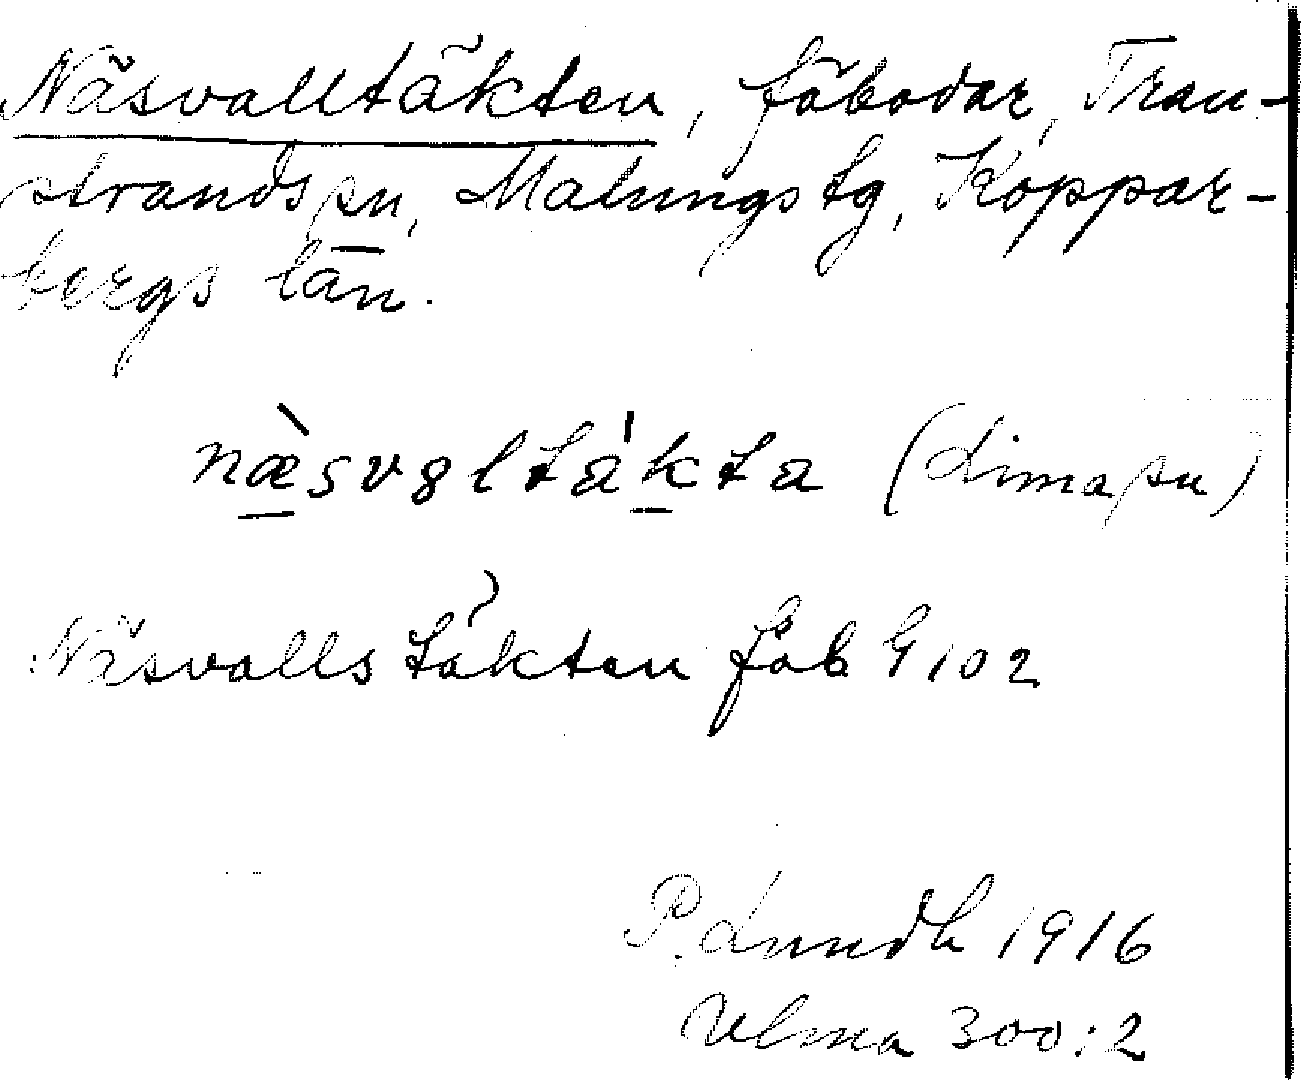 Näsvalltäkten, fäbodar, Tran-
strands sn, Malungs tg, Koppar-
bergs län.
næ̀svȣltákta (Lima sn)
Näsvallstäkten fäb G 102
P. Lundh 1916
Ulma 300:2